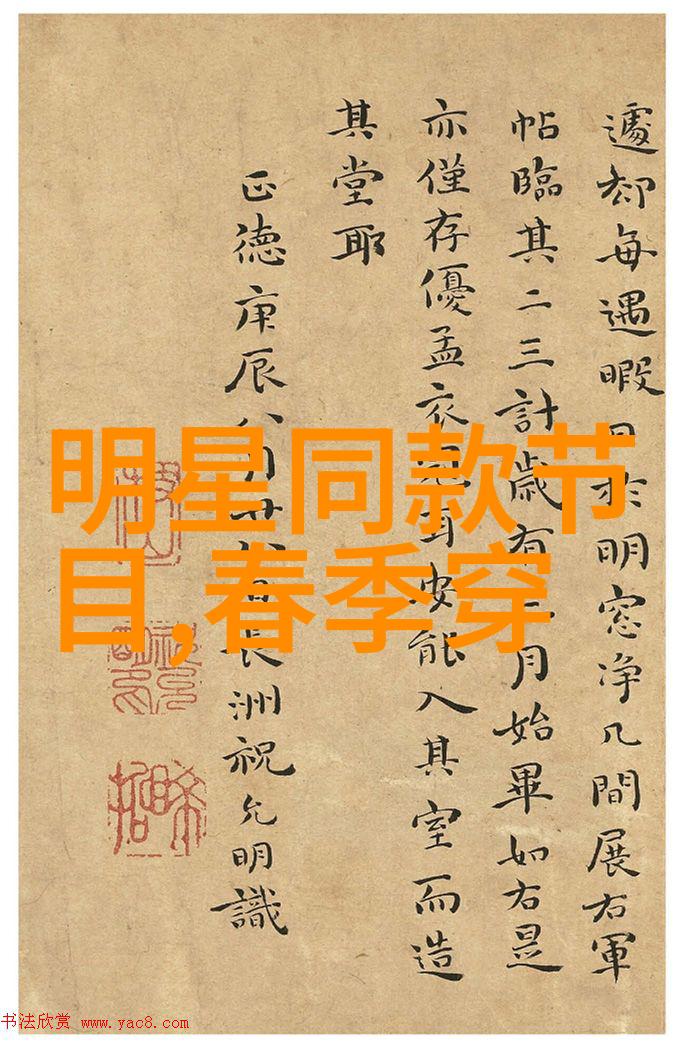 遽却每遇暇日於明窓净几間展右軍
帖臨其二三計歲有月始畢如右是
亦僅存優孟衣冠耳安能入其室而造
其堂耶
正德庚辰八月廿長洲祝允明識
明星同款节
目,春季穿
书法欣赏 www.yac8.com